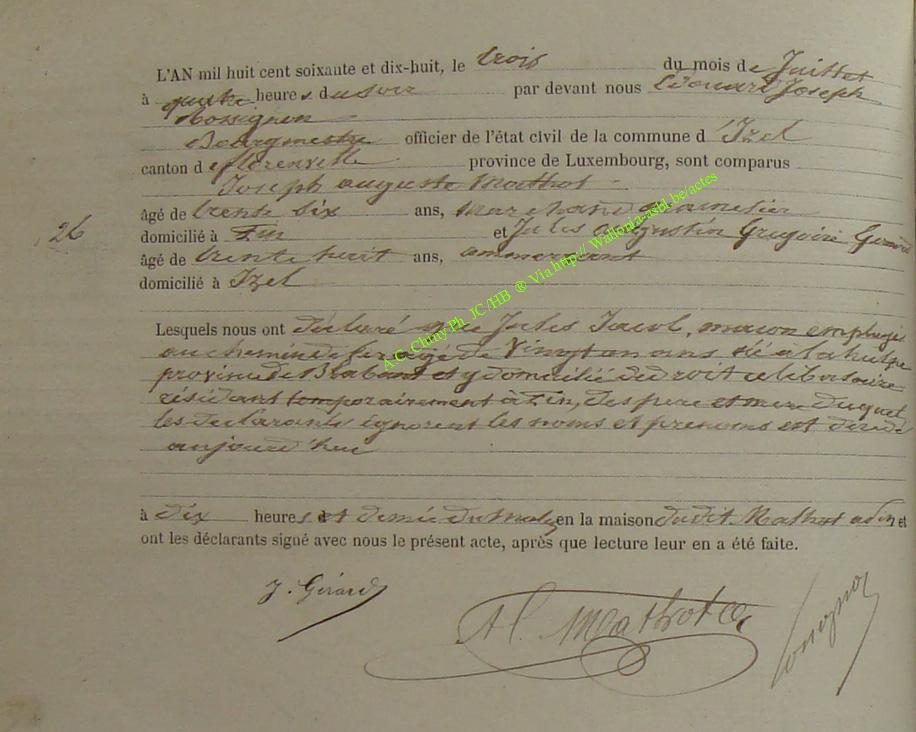 L'AN mil huit cent soixante et dix-huit, le trois du mois de Juillet
à quatre heures du soir par devant nous Edouard Joseph
Rossignon
Bourgmestre officier de l'état civil de la commune d'Izel
canton de florenville province de Luxembourg, sont comparus
Joseph auguste Mathot
âgé de trente six ans, marchand grainetier
26
domicilié à Pin et Jules augustin Gregoire Gerard
âgé de trente huit ans, commercant
domicilié à Izel
Lesquels nous ont déclaré que Jules Jacol, macon employé
au chemin de fer agé de Vingt an ans né à la hulpe
province de Brabant et y domicilié de droit celibataire
résidant temporairement à Pin, des pere et mere duquel
les declarants ignorent les noms et prenoms est décédé
aujourd'hui
à dix heures et demie du matin en la maison dudit Mathot a Pin et
ont les déclarants signé avec nous le présent acte, après que lecture leur en a été faite.
J. Gérard
Mathot
A G Chiny/Ph JC/HB ® Via http// Wallonia-asbl.be/actes